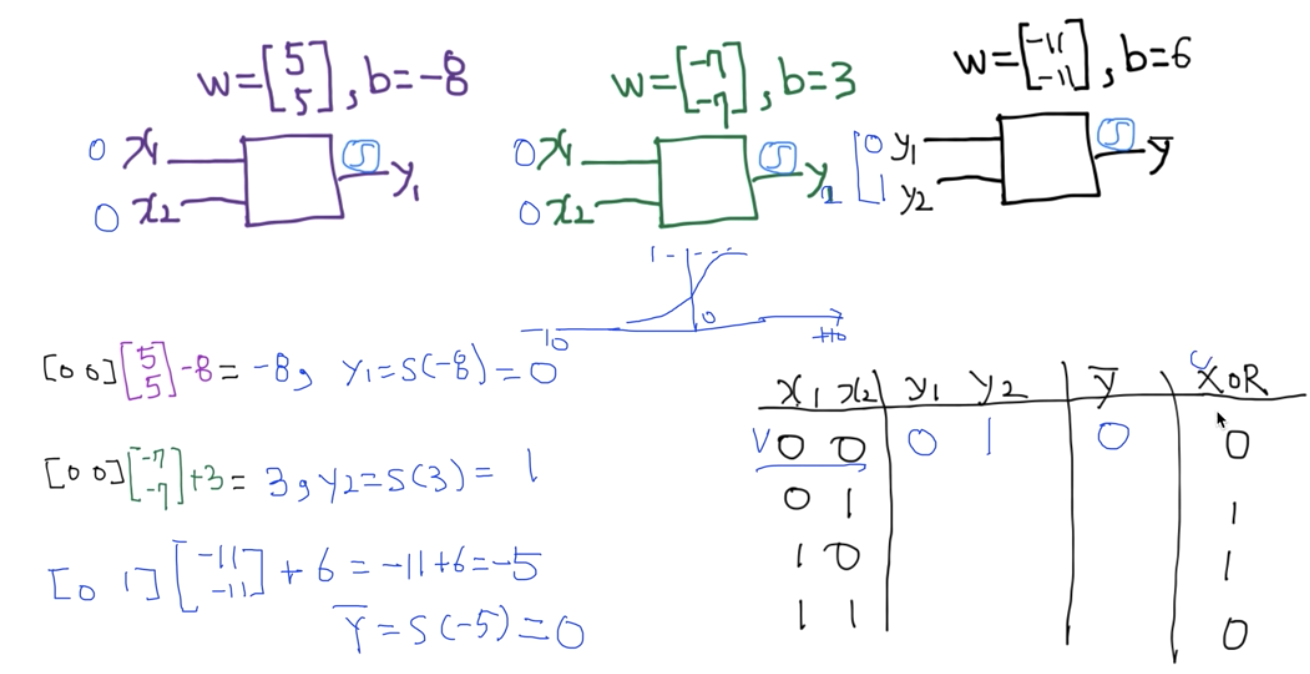 w=[5 5], b=-8
0 x1 S y1
0 x2
w=[-7 -7], b=3
0 x1 S y2
0 x2
w=[-11 -11], b=6
0 y1 S ȳ
1 y2
1
0
-10
+10
[0 0][5 5]-8= -8, y1=S(-8)=0
[0 0][-7 -7]+3= 3, y2=S(3)= 1
[0 1][-11 -11]+6=-11+6=-5
Ȳ=S(-5)=0
x1 x2 y1 y2 ȳ XOR
0 0 0 1 0 0
0 1 1
1 0 1
1 1 0